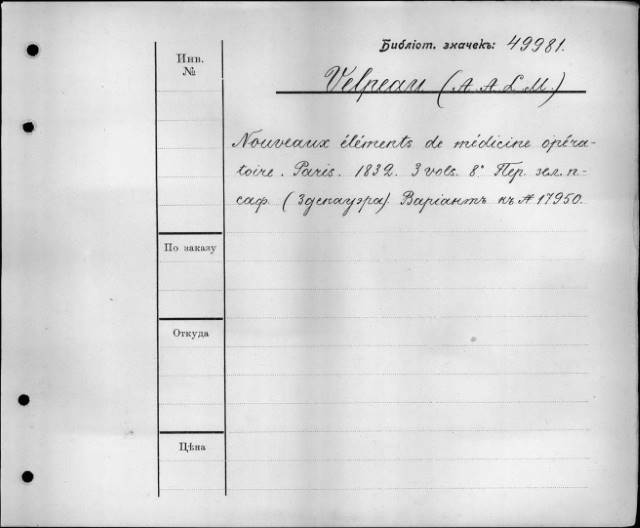 Библіот. значекъ: 49981.
Инв.
№
Velpeau (A. A. L. M.)
Nouveaux éléments de médicine opéra-
toire. Paris. 1832. 3 vols. 8° Пер. зел. п-
саф. (Здепауэра). Варіантъ къ № 17950.
По заказу
Откуда
Цѣна